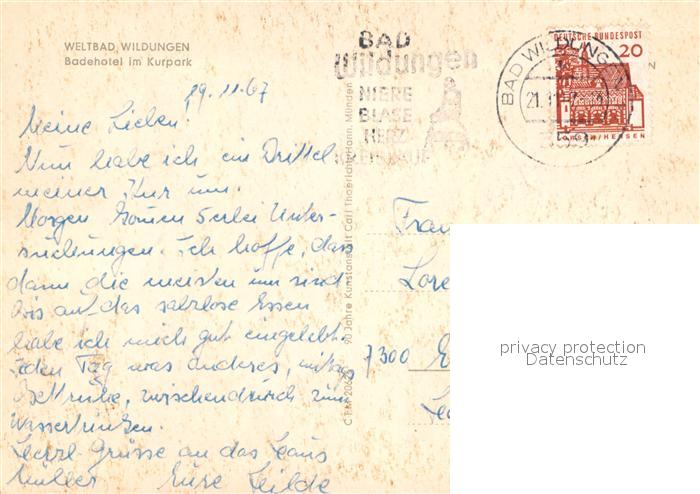 WELTBAD WILDUNGEN
Badehotel im Kurpark
BAD
Wildungen
NIERE
BLASE
HERZ
DEUTSCHE BUNDESPOST
20
BAD WILDUNGEN
29.11.67
Meine Lieben.
Nun habe ich ein Drittel
meiner Kur um.
Morgen kommen 5erlei Unter-
suchungen. Ich hoffe, dass
dann die meisten um sind
bis auf das salzlose Essen
habe ich mich gut eingelebt.
jeden Tag was anderes, mittags
Bettruhe, zwischendurch zum
Wassertrinken.
Herzl. Grüsse an das Haus
Müller Eure Hilde
90 Jahre Kunstanstalt Carl Thoericht/Hann. Münden
Frau
Lore
7300
privacy protection
Datenschutz